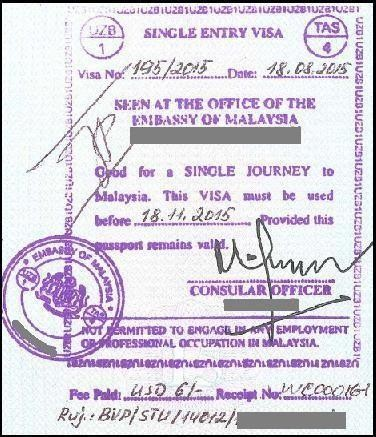 UZB 1
SINGLE ENTRY VISA
TAS 4
Visa No: 195/2015 Date: 18.08.2015
SEEN AT THE OFFICE OF THE
EMBASSY OF MALAYSIA
Good for a SINGLE JOURNEY to
Malaysia. This VISA must be used
before 18.11.2015 Provided this
passport remains valid.
EMBASSY OF MALAYSIA
CONSULAR OFFICER
NOT PERMITTED TO ENGAGE IN ANY EMPLOYMENT
OR PROFESSIONAL OCCUPATION IN MALAYSIA.
Fee Paid: USD 6/- Receipt No:
Ruj.: BVP/STU/14012/